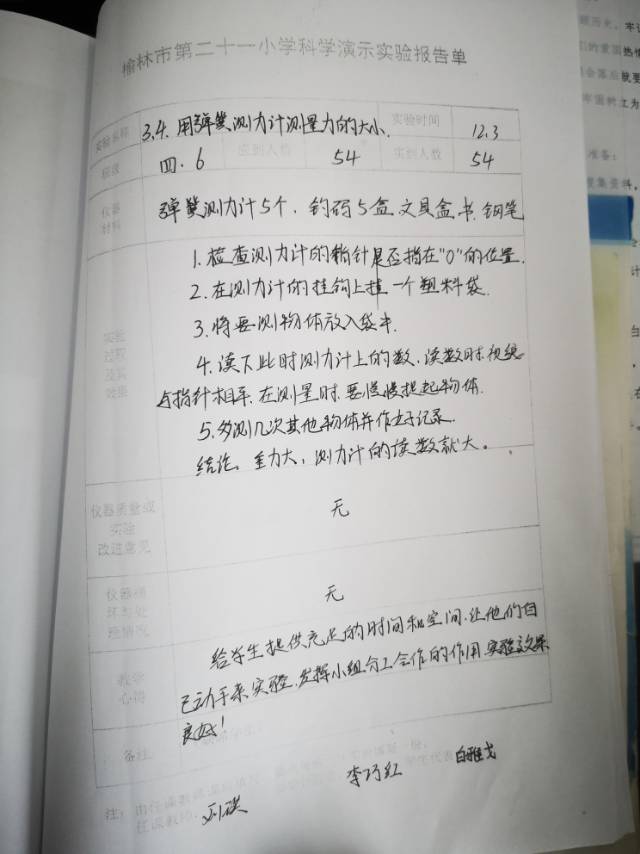 榆林市第二十一小学科学演示实验报告单
实验名称 3.4.用弹簧测力计测量力的大小. 实验时间 12.3
班级 四.6 应到人数 54 实到人数 54
仪器
材料
弹簧测力计5个、钩码5盒 文具盒 书 钢笔
1.检查测力计的指针是否指在"0"的位置.
2.在测力计的挂钩上挂一个塑料袋.
3.将要测物体放入袋中.
实验
过程
及其
效果
4.读下此时测力计上的数,读数时视线
与指针相平.在测量时要慢慢提起物体.
5.多测几次其他物体并作好记录.
结论:重力大,测力计的读数就大。
仪器质量或
实验
改进意见
无
仪器损
坏与处
理情况
无
教学
心得
给学生提供充足的时间和空间.让他们自
己动手来实验.发挥小组分工合作的作用.实验效果
良好!
备注:
注:由任课教师
任课教师:
李巧红